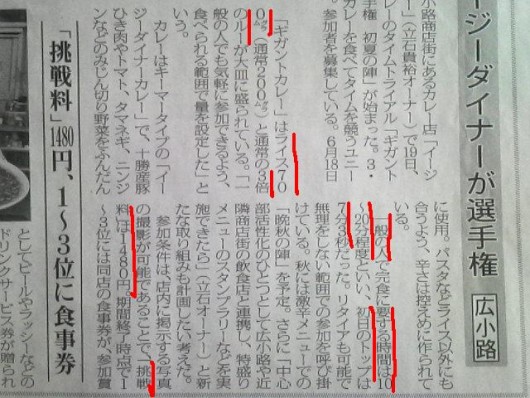 ージーダイナーが選手権
広小路
小路商店街にあるカレー店「イージ
ーダイナー」(立石貴裕オーナー)で19日、
カレーのタイムトライアル「ギガント
手権 初夏の陣」が始まった。3・
カレーを食べてタイムを競うユニー
。参加者を募集している。6月18日
「ギガントカレー」はライス70
0㌘(通常200㌘)と通常の3倍
のルーが大皿に盛られている。「一
般の人でも気軽に参加できるよう、
食べられる範囲で量を設定した」と
いう。
カレーはキーマータイプの「イー
ジーダイナーカレー」で、十勝産豚
ひき肉やトマト、タマネギ、ニンジ
ンなどのみじん切り野菜をふんだん
に使用。パスタなどライス以外にも
合うよう、辛さは控えめに作られて
いる。
一般の人で完食に要する時間は10
~20分程度といい、初日のトップは
7分3秒だった。リタイアも可能で
無理をしない範囲での参加を呼び掛
けている。秋には激辛メニューでの
「晩秋の陣」を予定。さらに「中心
部活性化のひとつとして広小路や近
隣商店街の飲食店と連携し、特盛り
メニューのスタンプラリーなどを実
施できたら」(立石オーナー)と新
たな取り組みも計画したい考えだ。
参加条件は、店内に掲示する写真
の撮影が可能であることで、挑戦
料は1480円。期間終了時点で1
~3位には同店の食事券が、参加賞
としてビールやラッシーなどの
ドリンクサービス券が贈られ
「挑戦料」1480円、1~3位に食事券